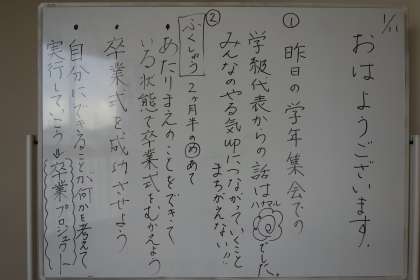 1/11
おはようございます。
① 昨日の学年集会での
学級代表からの話はハナマルでした。
みんなのやる気UPにつながっていくこと
まちがえない!!
②
ふくしゅう 2ヶ月半のめあて
・あたりまえのことをできて
いる状態で卒業式をむかえよう
・卒業式を成功させよう
・自分にできることが何かを考えて
実行していこう⇒卒業プロジェクト